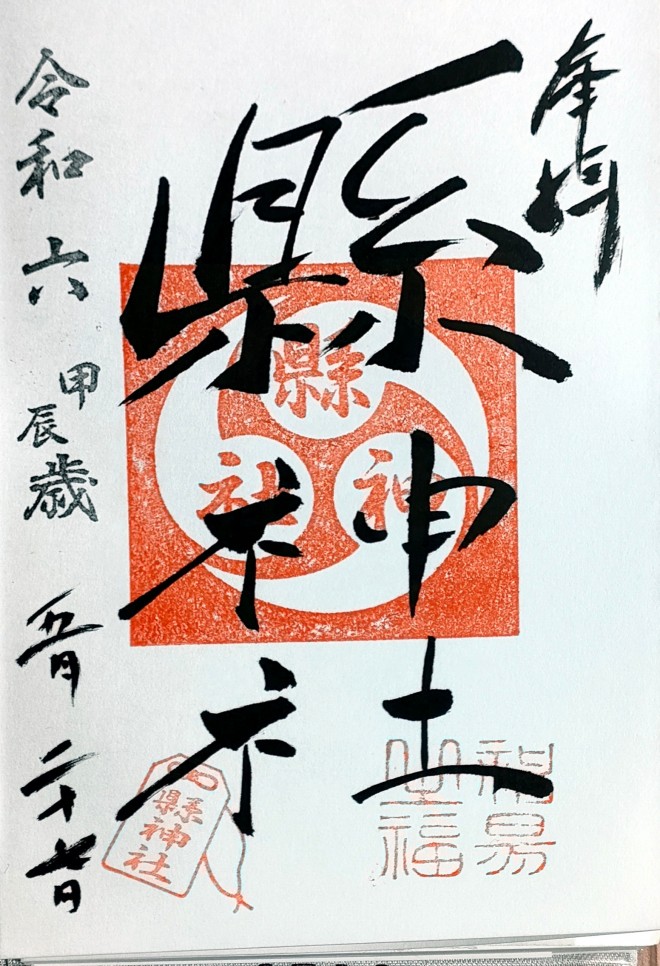 奉拝
縣神社
縣神社
令和六甲辰歳五月二十七日
縣神社